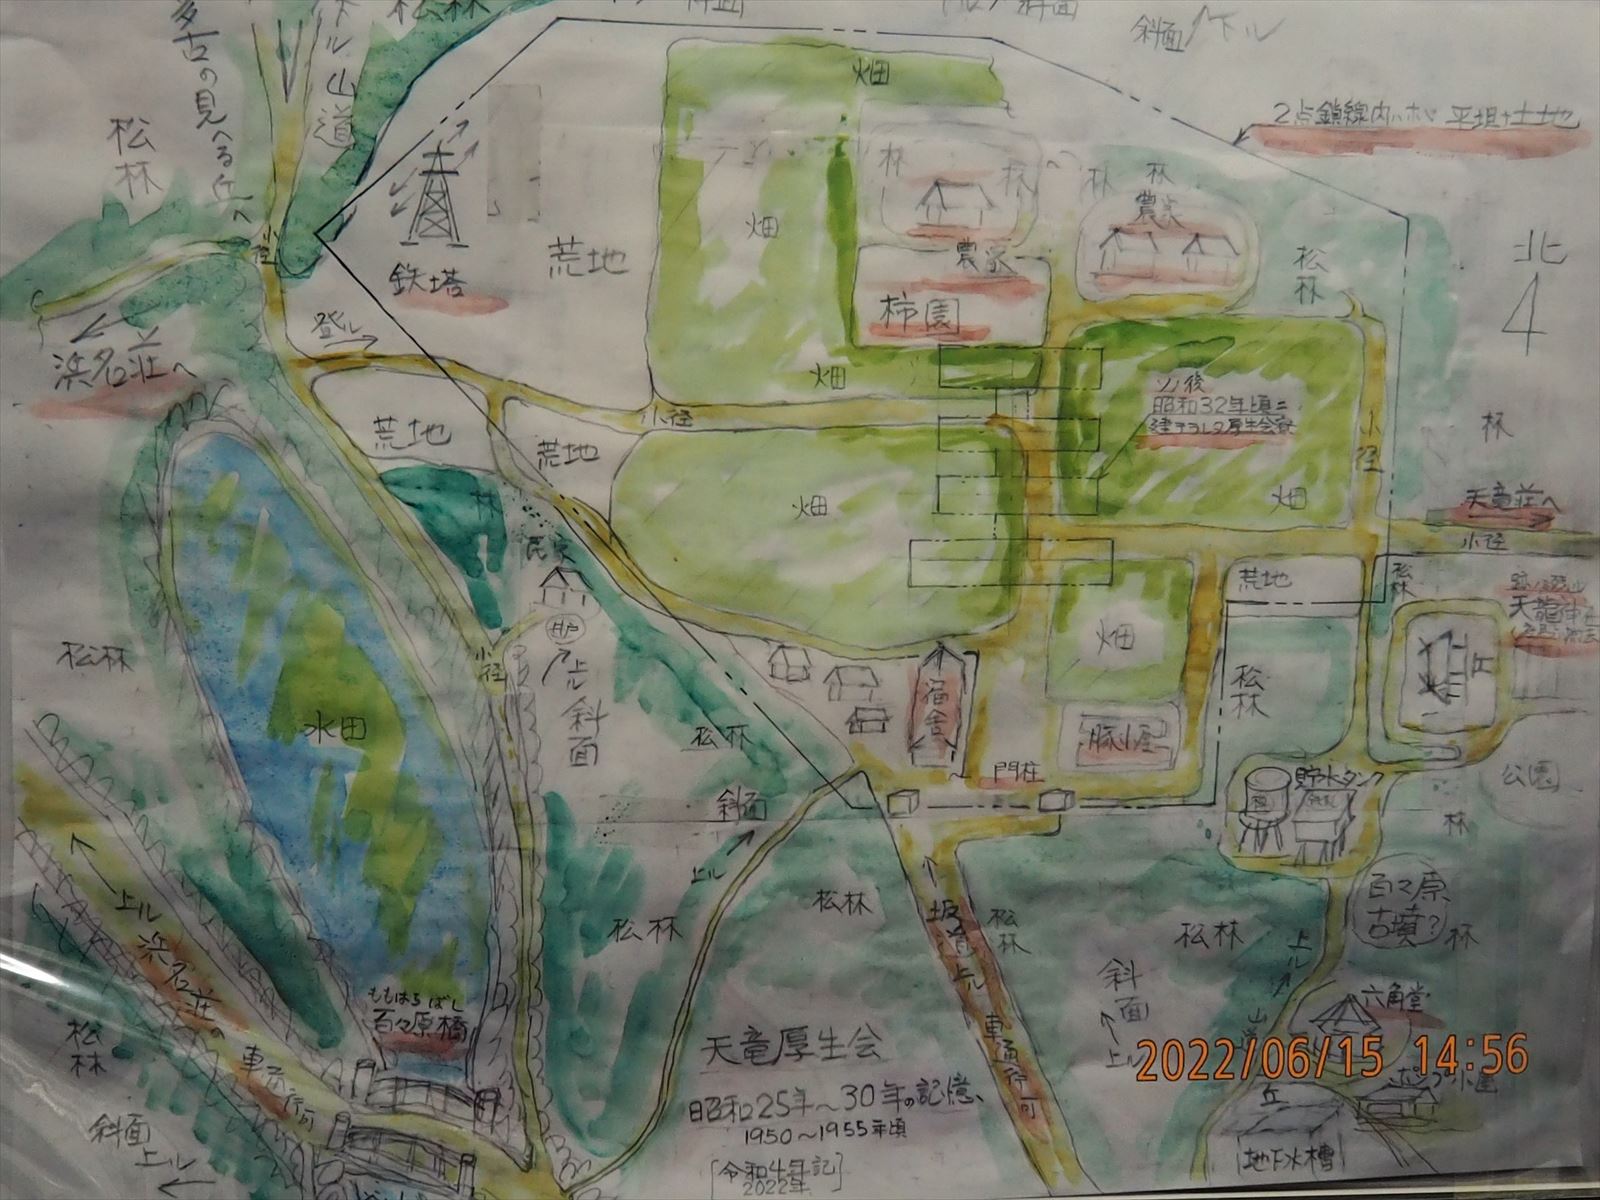 松林
斜面
斜面
下ル
2点鎖線内ハホゞ平坦ナ土地
多古の見へる丘へ
下ル山道
松林
小径
鉄塔
荒地
畑
畑
林
林
農家
柿園
林
林
農家
松林
北
浜名荘へ
登ル
畑
小径
ソノ後
昭和32年頃ニ
建テラレタ厚生会寮
小径
林
荒地
荒地
畑
畑
天竜荘へ
小径
林
民家
井戸
上ル
斜面
小径
荒地
松林
畑
丘
松林
水田
松林
宿舎
豚小屋
松林
門柱
斜面
貯水タンク
公園
林
上ル
上ル
浜名荘へ
車通行可
松林
松林
坂道
上ル
車通行可
松林
松林
百々原
古墳?
林
松林
ももはらばし
百々原橋
斜面
上ル
上ル
山道
六角堂
ポンプ小屋
丘
地下水槽
斜面
上ル
天竜厚生会
昭和25年〜30年の記憶、
1950〜1955年頃
[令和4年記]
2022年
2022/06/15 14:56